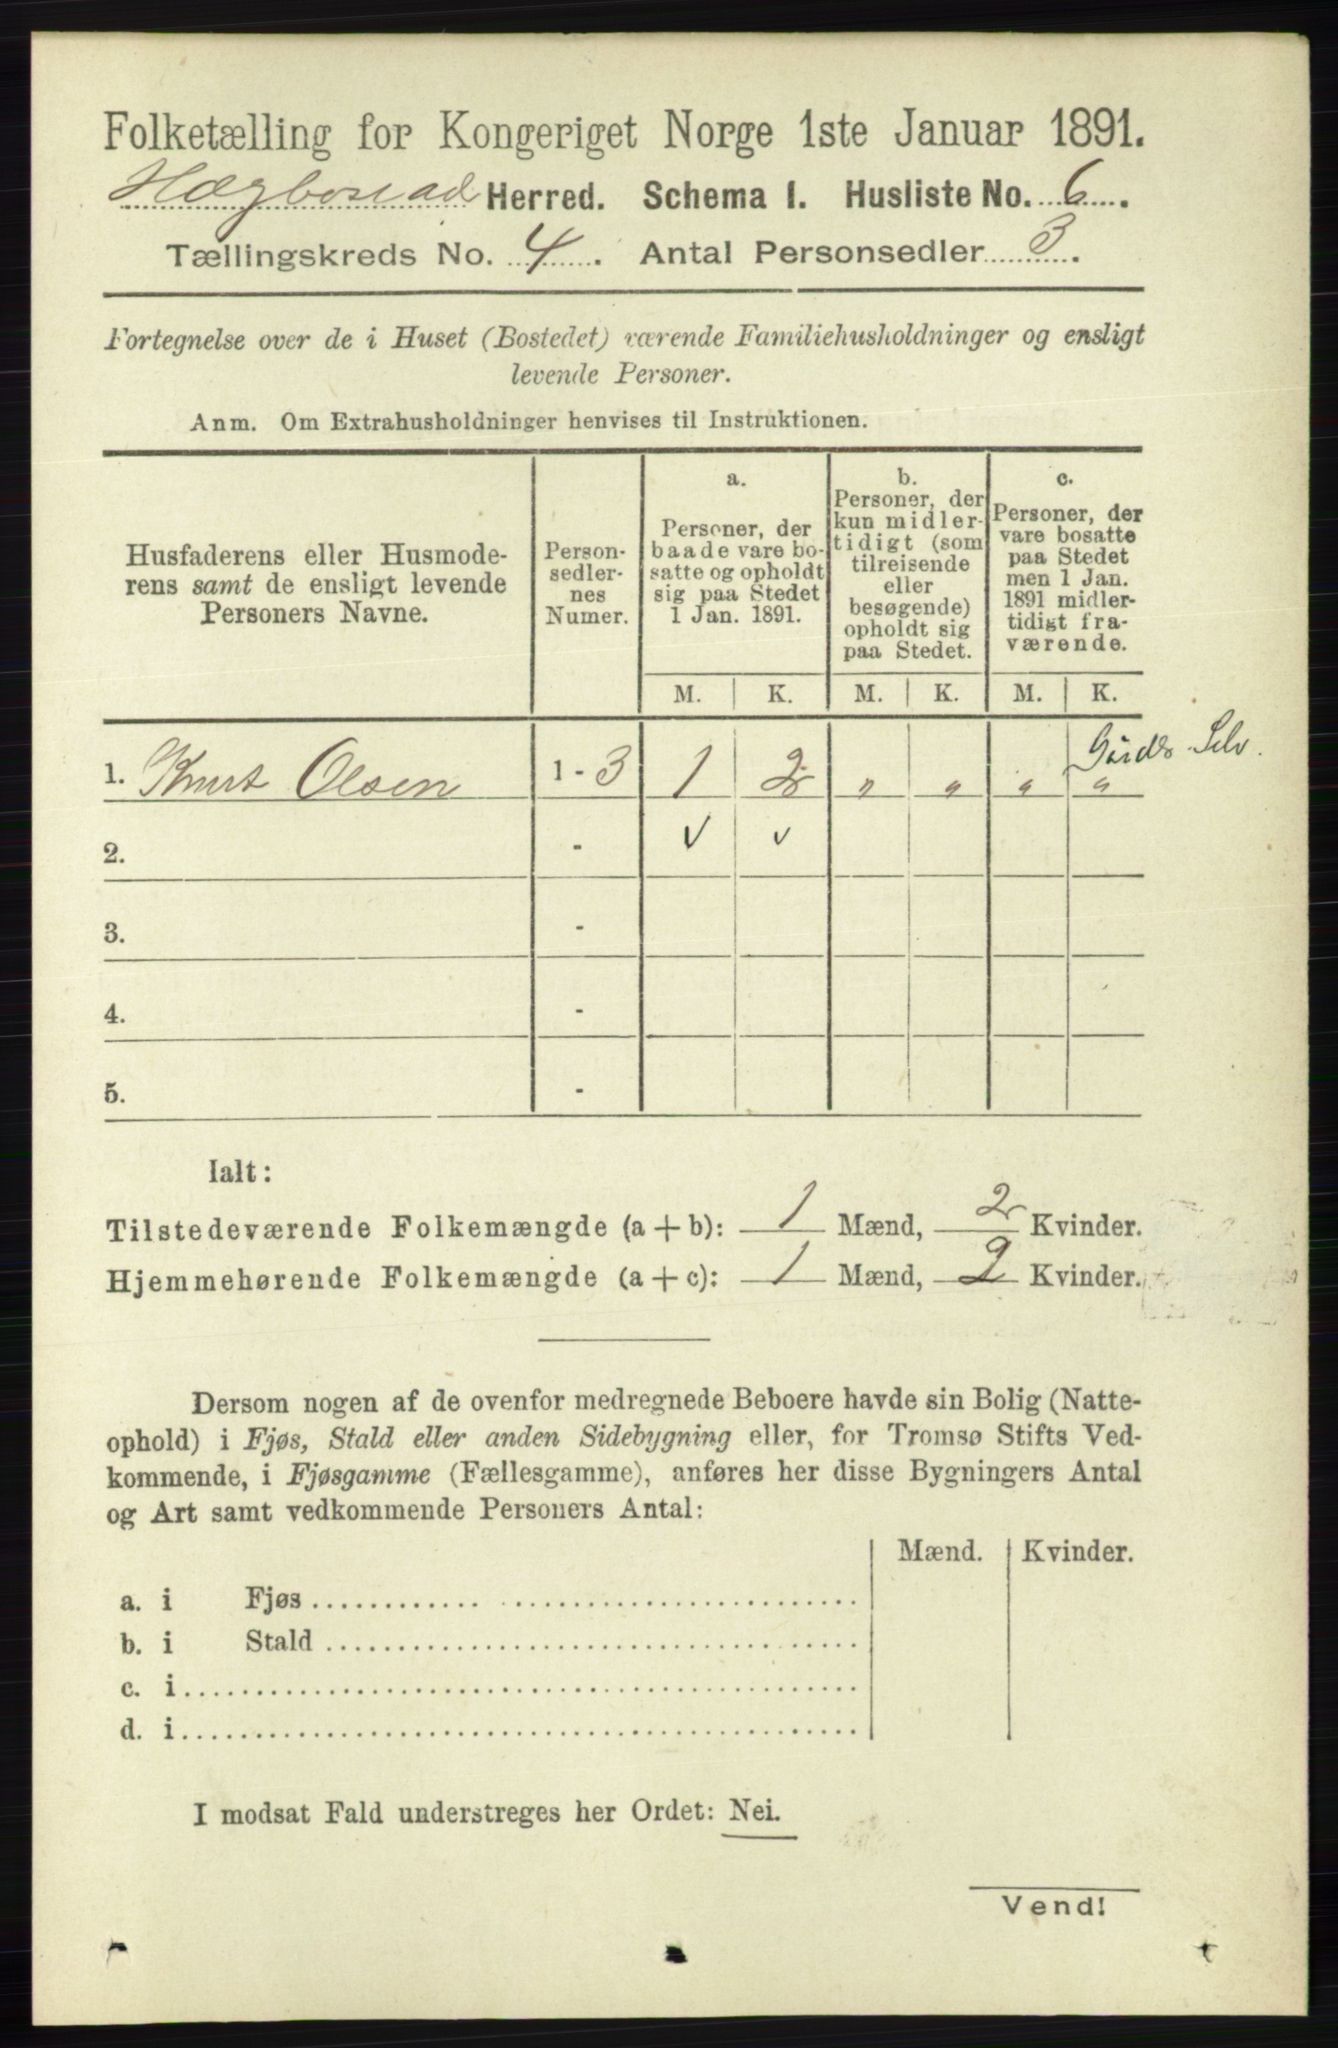 Folketælling for Kongeriget Norge 1ste Januar 1891.
Hægbostad Herred. Schema I. Husliste No. 6.
Tællingskreds No. 4. Antal Personsedler 3.
Fortegnelse over de i Huset (Bostedet) værende Familiehusholdninger og ensligt
levende Personer.
Anm. Om Extrahusholdninger henvises til Instruktionen.
Husfaderens eller Husmode-
rens samt de ensligt levende
Personers Navne.
Person-
sedler-
nes
Numer.
a.
Personer, der
baade vare bo-
satte og opholdt
sig paa Stedet
1 Jan. 1891.
b.
Personer, der
kun midler-
tidigt (som
tilreisende
eller
besøgende)
opholdt sig
paa Stedet.
c.
Personer, der
vare bosatte
paa Stedet
men 1 Jan.
1891 midler-
tidigt fra-
værende.
M. K. M. K. M. K.
1. Knut Olsen 1 - 3 1 2 " " " " Gårdb. Selv.
2. - v v
3. -
4. -
5. -
Ialt:
Tilstedeværende Folkemængde (a + b): 1 Mænd, 2 Kvinder.
Hjemmehørende Folkemængde (a + c): 1 Mænd, 2 Kvinder.
Dersom nogen af de ovenfor medregnede Beboere havde sin Bolig (Natte-
ophold) i Fjøs, Stald eller anden Sidebygning eller, for Tromsø Stifts Ved-
kommende, i Fjøsgamme (Fællesgamme), anføres her disse Bygningers Antal
og Art samt vedkommende Personers Antal:
Mænd. Kvinder.
a. i Fjøs
b. i Stald
c. i
d. i
I modsat Fald understreges her Ordet: Nei.
Vend!